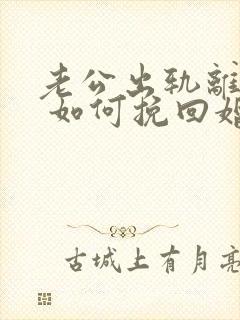 老公出轨離
如何挽回婚
古城上有月亮